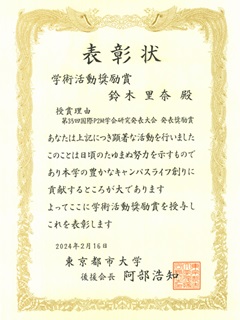 表彰状
学術活動奨励賞
鈴木里奈 殿
授賞理由
第35回国際P2M学会研究発表大会 発表奨励賞
あなたは上記につき顕著な活動を行いました
このことは日頃のたゆまぬ努力を示すもので
あり本学の豊かなキャンパスライフ創りに
貢献するところが大であります
よってここに学術活動奨励賞を授与し
これを表彰します
2024年2月16日
東京都市大学
後援会長 阿部浩知